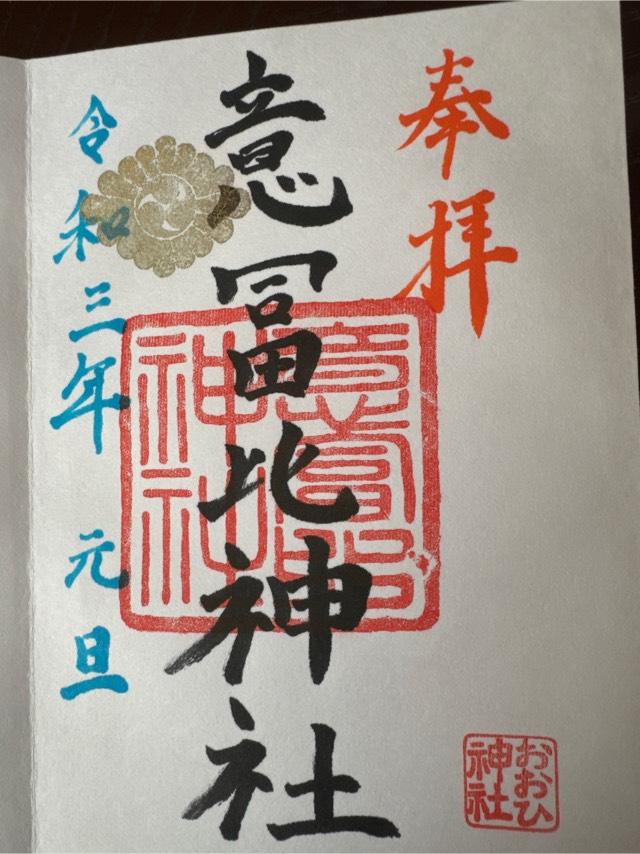 奉拝
意冨比神社
令和三年 元旦
意富
神社
おおひ
神社